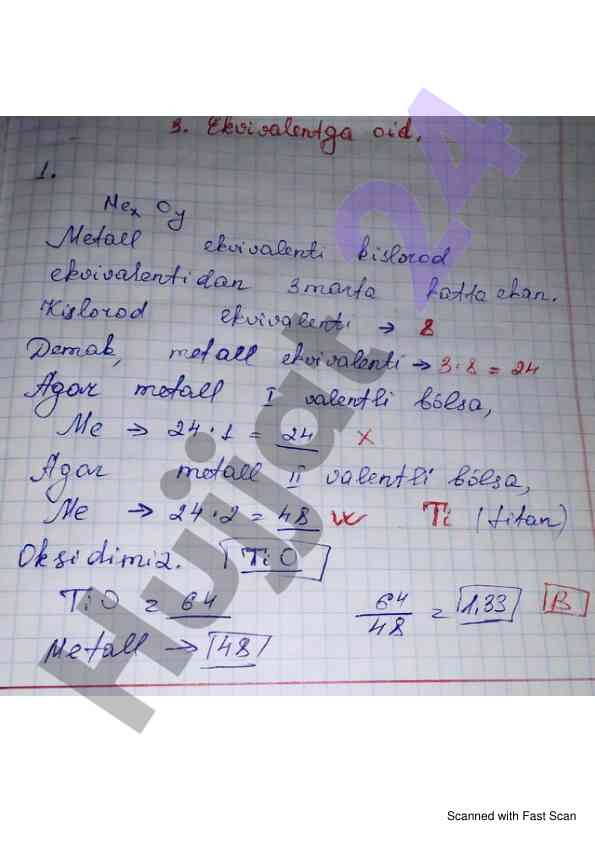 3. Ekvivalentga oid.
1.
Mex Oy
Metall ekvivalenti kislorod
ekvivalentidan 3 marta katta ekan.
Kislorod ekvivalenti → 8
Demak, metall ekvivalenti → 3·8 = 24
Agar metall I valentli bólsa,
Me → 24·1 = 24 ×
Agar metall II valentli bólsa,
Me → 24·2 = 48 Ti (titan)
Oksidimiz. TiO
TiO = 64 64/48 = 1,33 B
Metall → 48
Hujjat 24
Scanned with Fast Scan